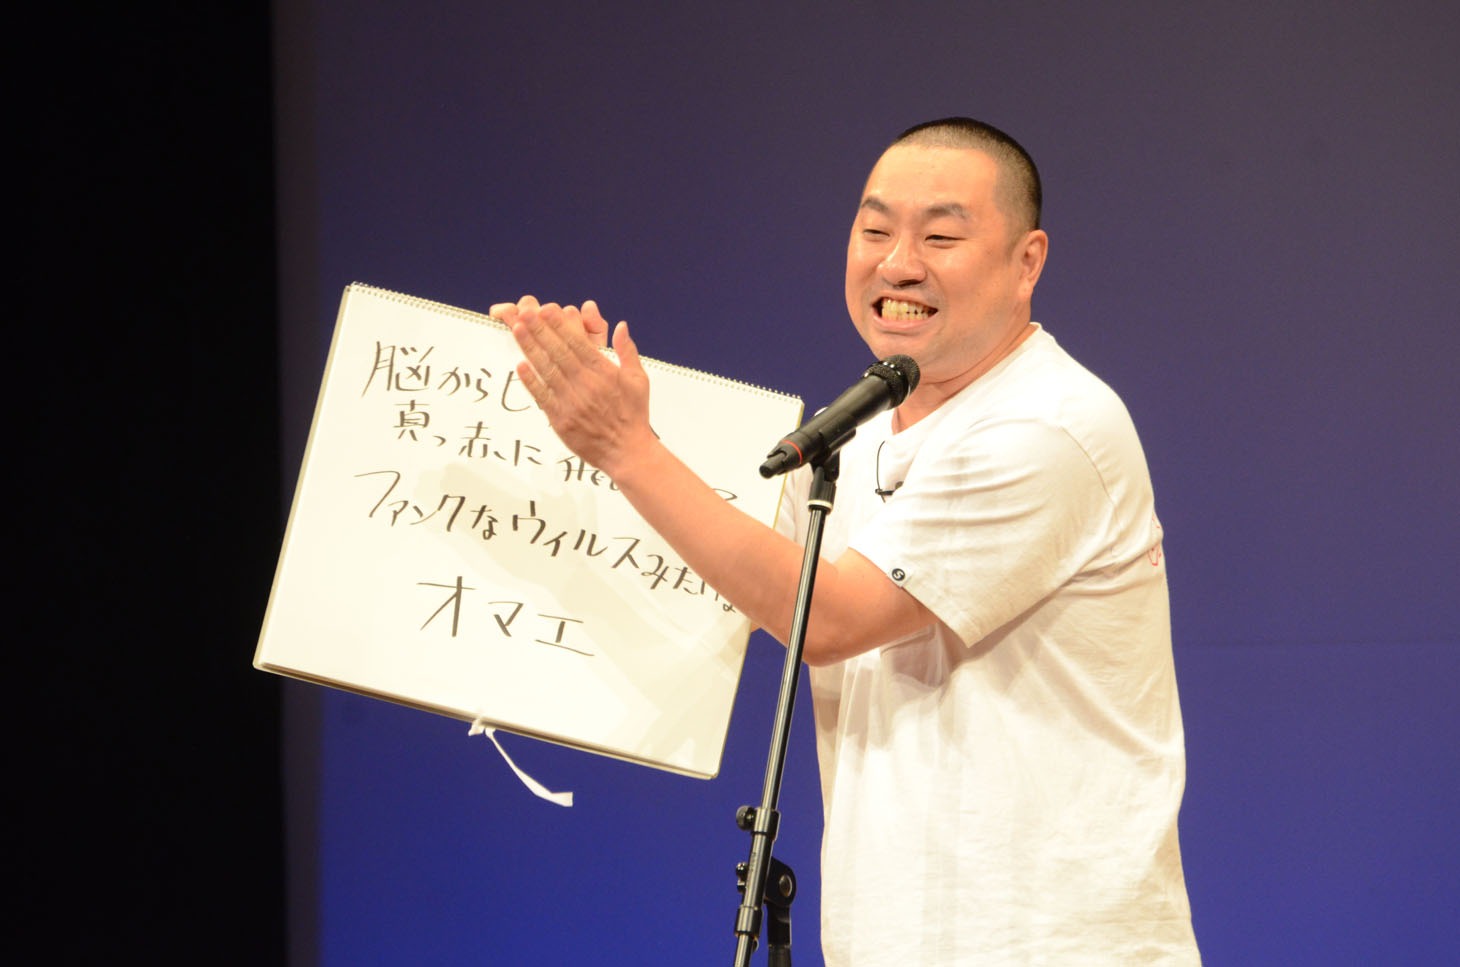 脳からヒ
真っ赤に飛
ファンクなウィルスみたいな
オマエ
S